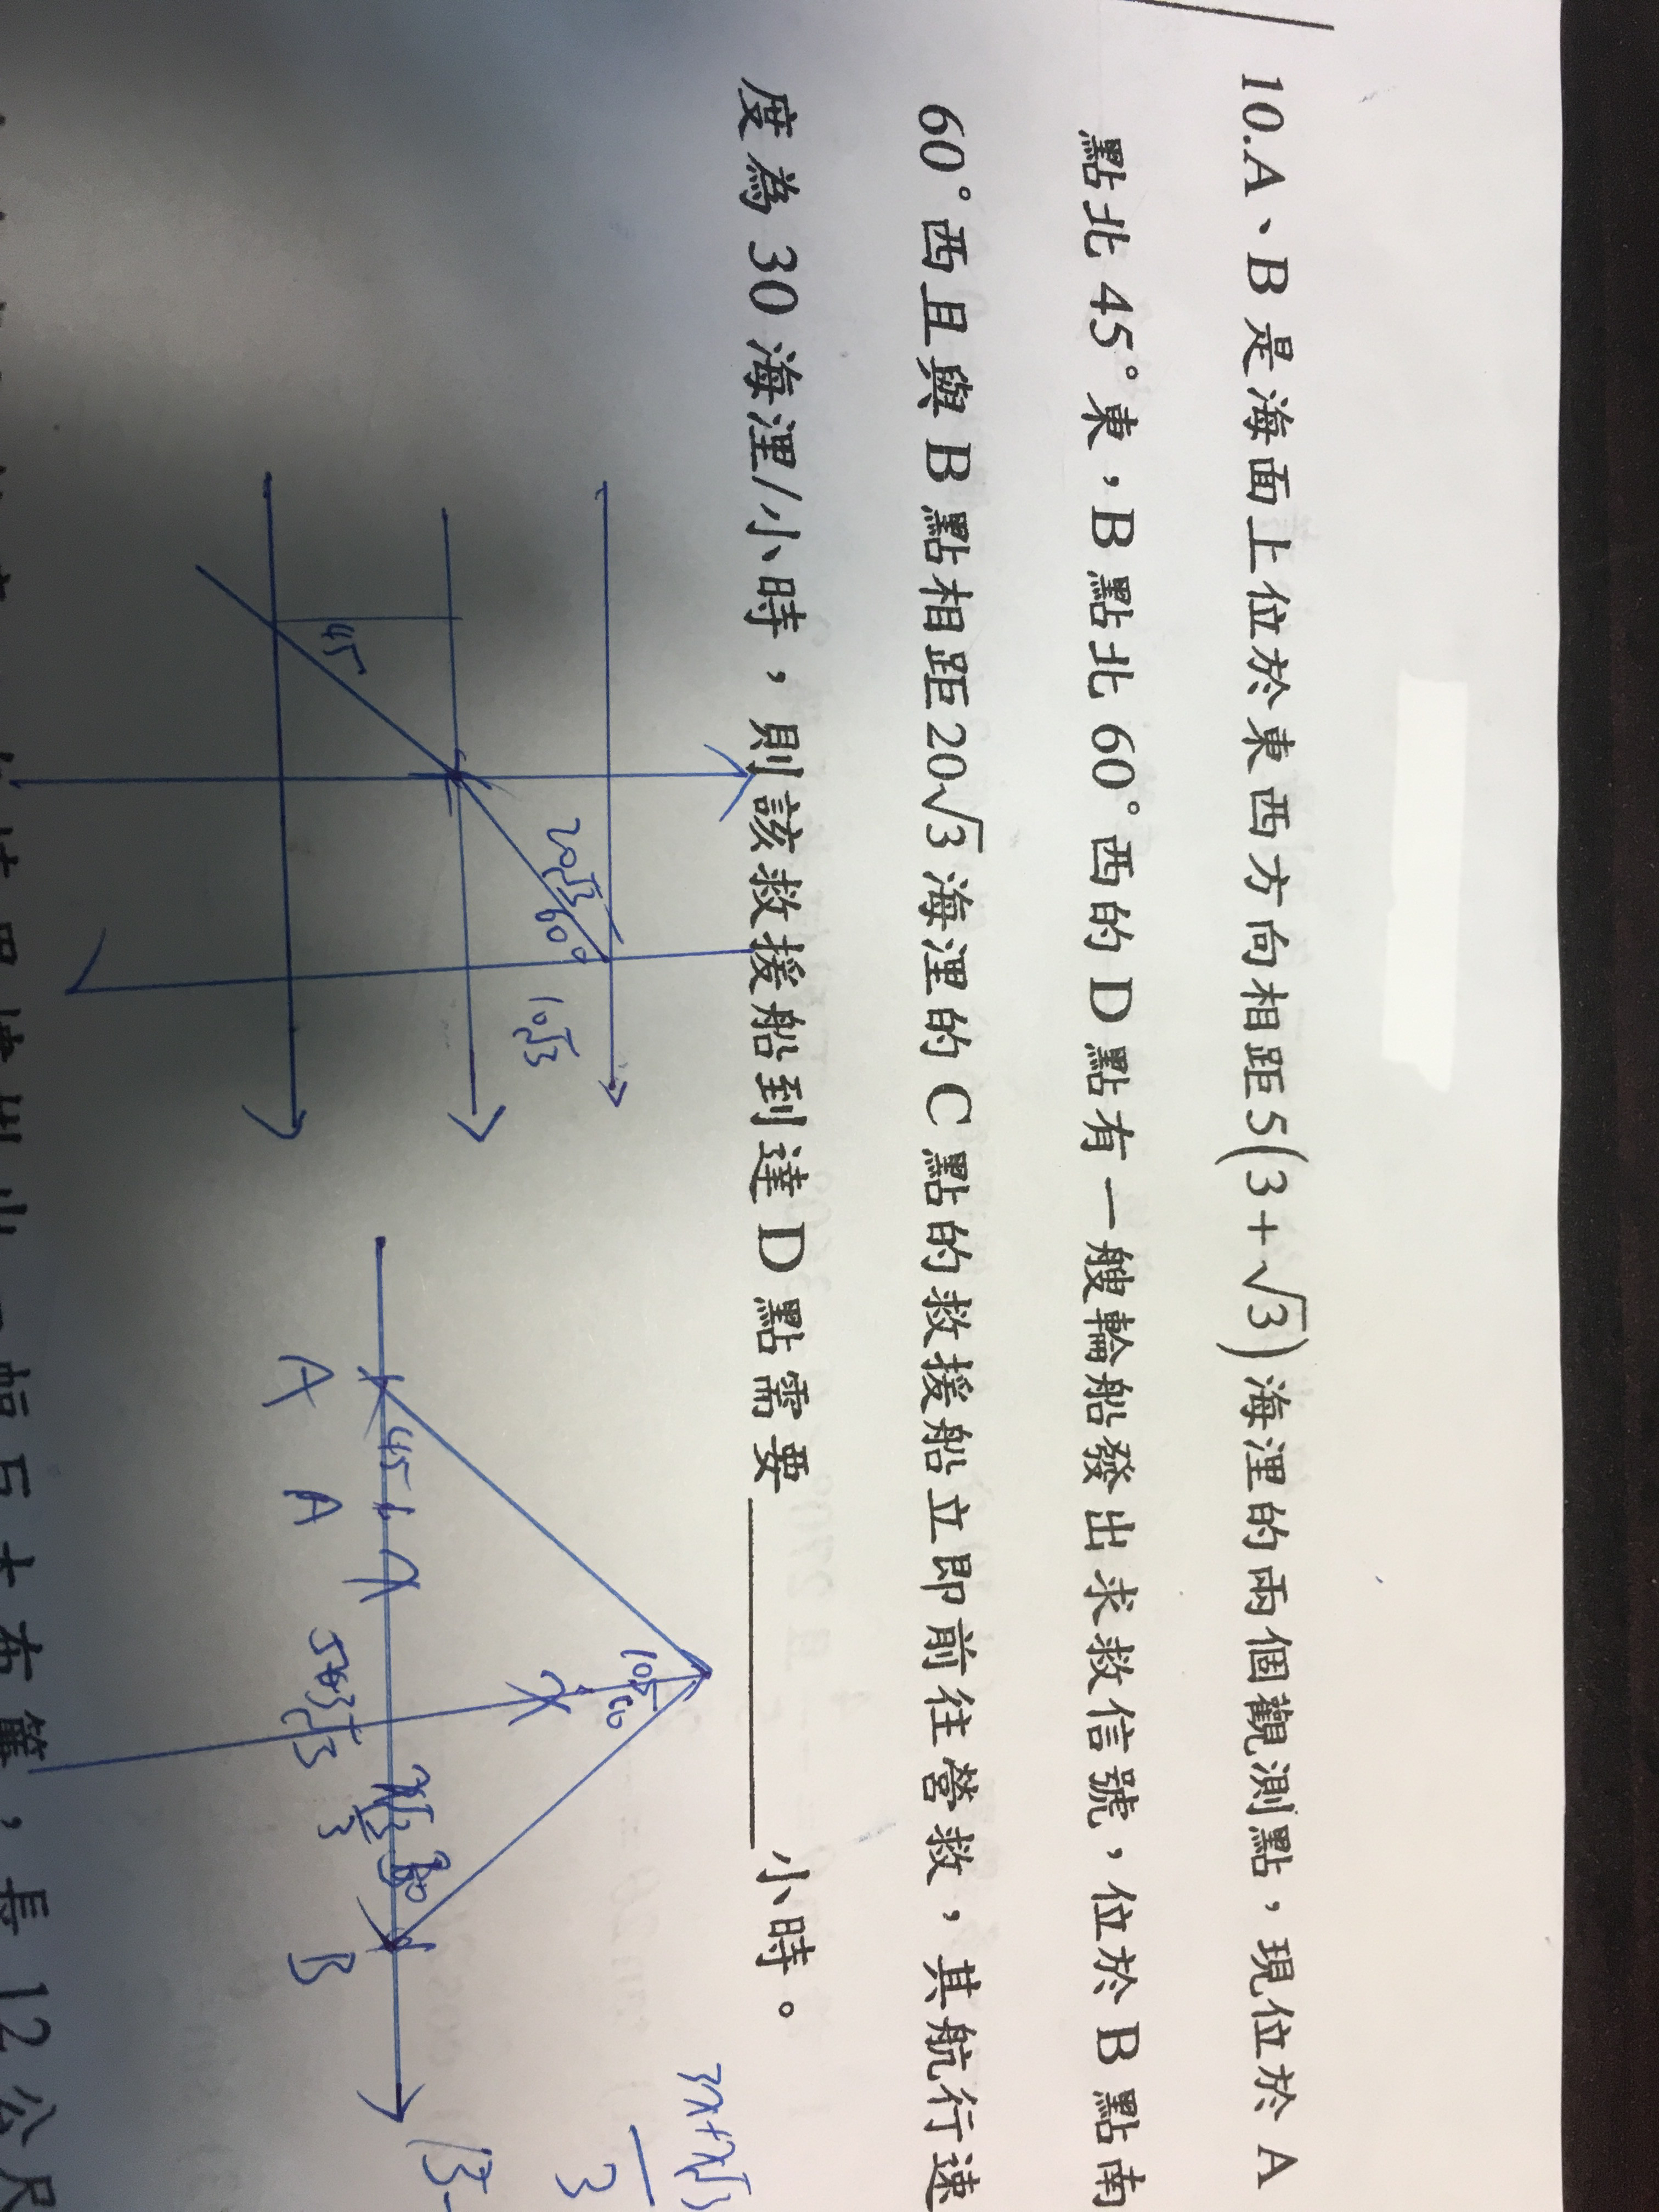 10.A、B 是海面上位於東西方向相距5(3+√3)海浬的兩個觀測點，現位於 A
點北 45°東，B 點北 60°西的 D 點有一艘輪船發出求救信號，位於 B 點南
60°西且與 B 點相距20√3 海浬的 C 點的救援船立即前往營救，其航行速
度為 30 海浬/小時，則該救援船到達 D 點需要 ________ 小時。
45
20√3
60°
10√3
A
45
A
x
105
60
x
B
3x+x√3
3